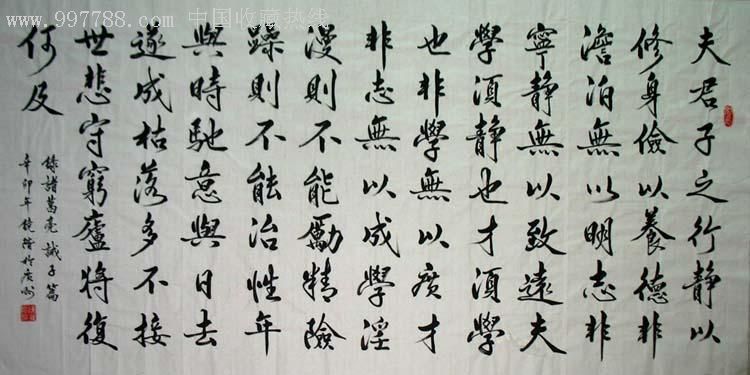 www.997788.com 中国收藏热线
夫君子之行静以
修身儉以養德非
澹泊無以明志非
寧静無以致遠夫
學須静也才須學
也非學無以廣才
非志無以成學淫
漫則不能勵精險
躁則不能治性年
與時馳意與日去
遂成枯落多不接
世悲守窮廬將復
何及
錄諸葛亮誡子篇
辛卯年於广州